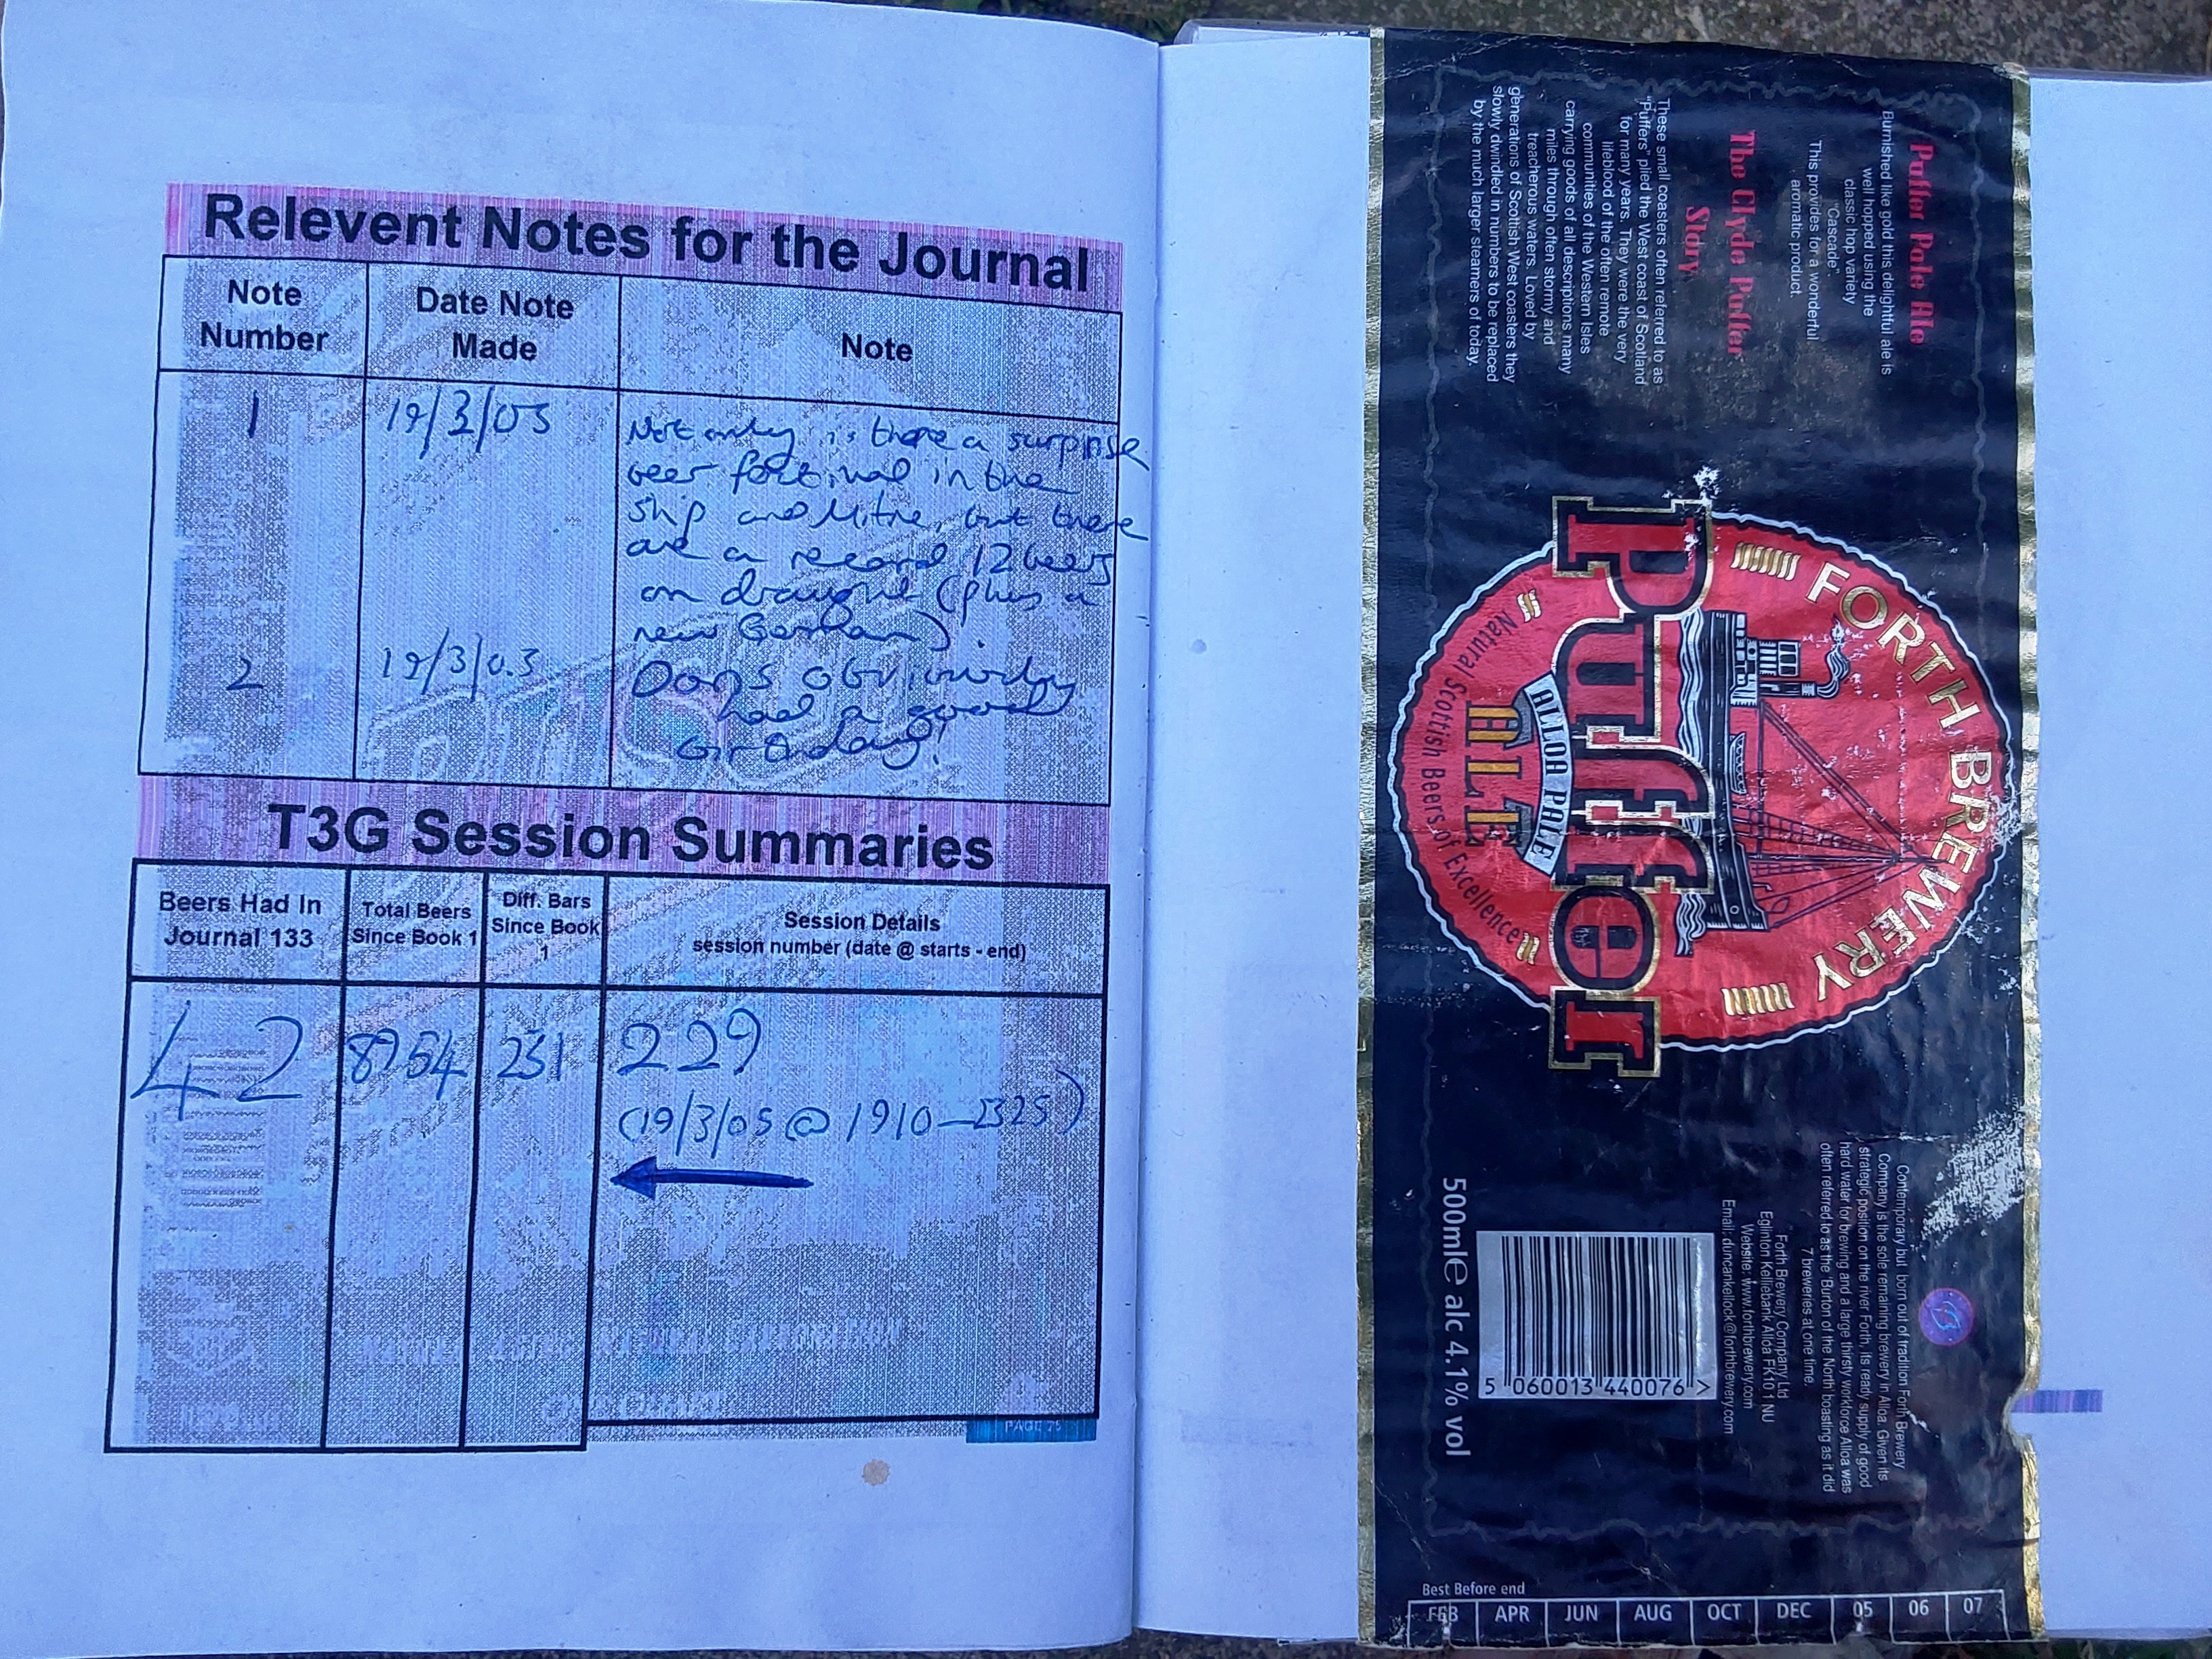 Relevent Notes for the Journal
Note Number
Date Note Made
Note
1
19/3/05
Not only is there a surprise
beer festival in the
Ship and Mitre, but there
are a record 12 beers
on draught (plus a
new German).
2
19/3/03
obviously
had a good
Birthday!
T3G Session Summaries
Beers Had In Journal 133
Total Beers Since Book 1
Diff. Bars Since Book 1
Session Details
session number (date @ starts - end)
42
8954
231
229
(19/3/05 @ 1910-2325)
PAGE 75
Puffer Pale Ale
Burnished like gold this delightful ale is
well hopped using the
classic hop variety
"Cascade"
This provides for a wonderful
aromatic product.
The Clyde Puffer
Story
These small coasters often referred to as
"Puffers" plied the West coast of Scotland
for many years. They were the very
lifeblood of the often remote
communities of the Western Isles
carrying goods of all descriptions many
miles through often stormy and
treacherous waters. Loved by
generations of Scottish West coasters they
slowly dwindled in numbers to be replaced
by the much larger steamers of today.
FORTH BREWERY
Puffer
ALLOA PALE
ALE
Natural Scottish Beers of Excellence
Contemporary but born out of tradition Forth Brewery
Company is the sole remaining brewery in Alloa. Given its
strategic position on the river Forth, its ready supply of good
hard water for brewing and a large thirsty workforce Alloa was
often referred to as the 'Burton of the North' boasting as it did
7 breweries at one time.
Forth Brewery Company Ltd
Eglinton Kelliebank Alloa FK10 1NU
Website: www.forthbrewery.com
Email: duncankellock@forthbrewery.com
5 060013 440076 >
500ml e alc 4.1% vol
Best Before end
FEB APR JUN AUG OCT DEC 05 06 07